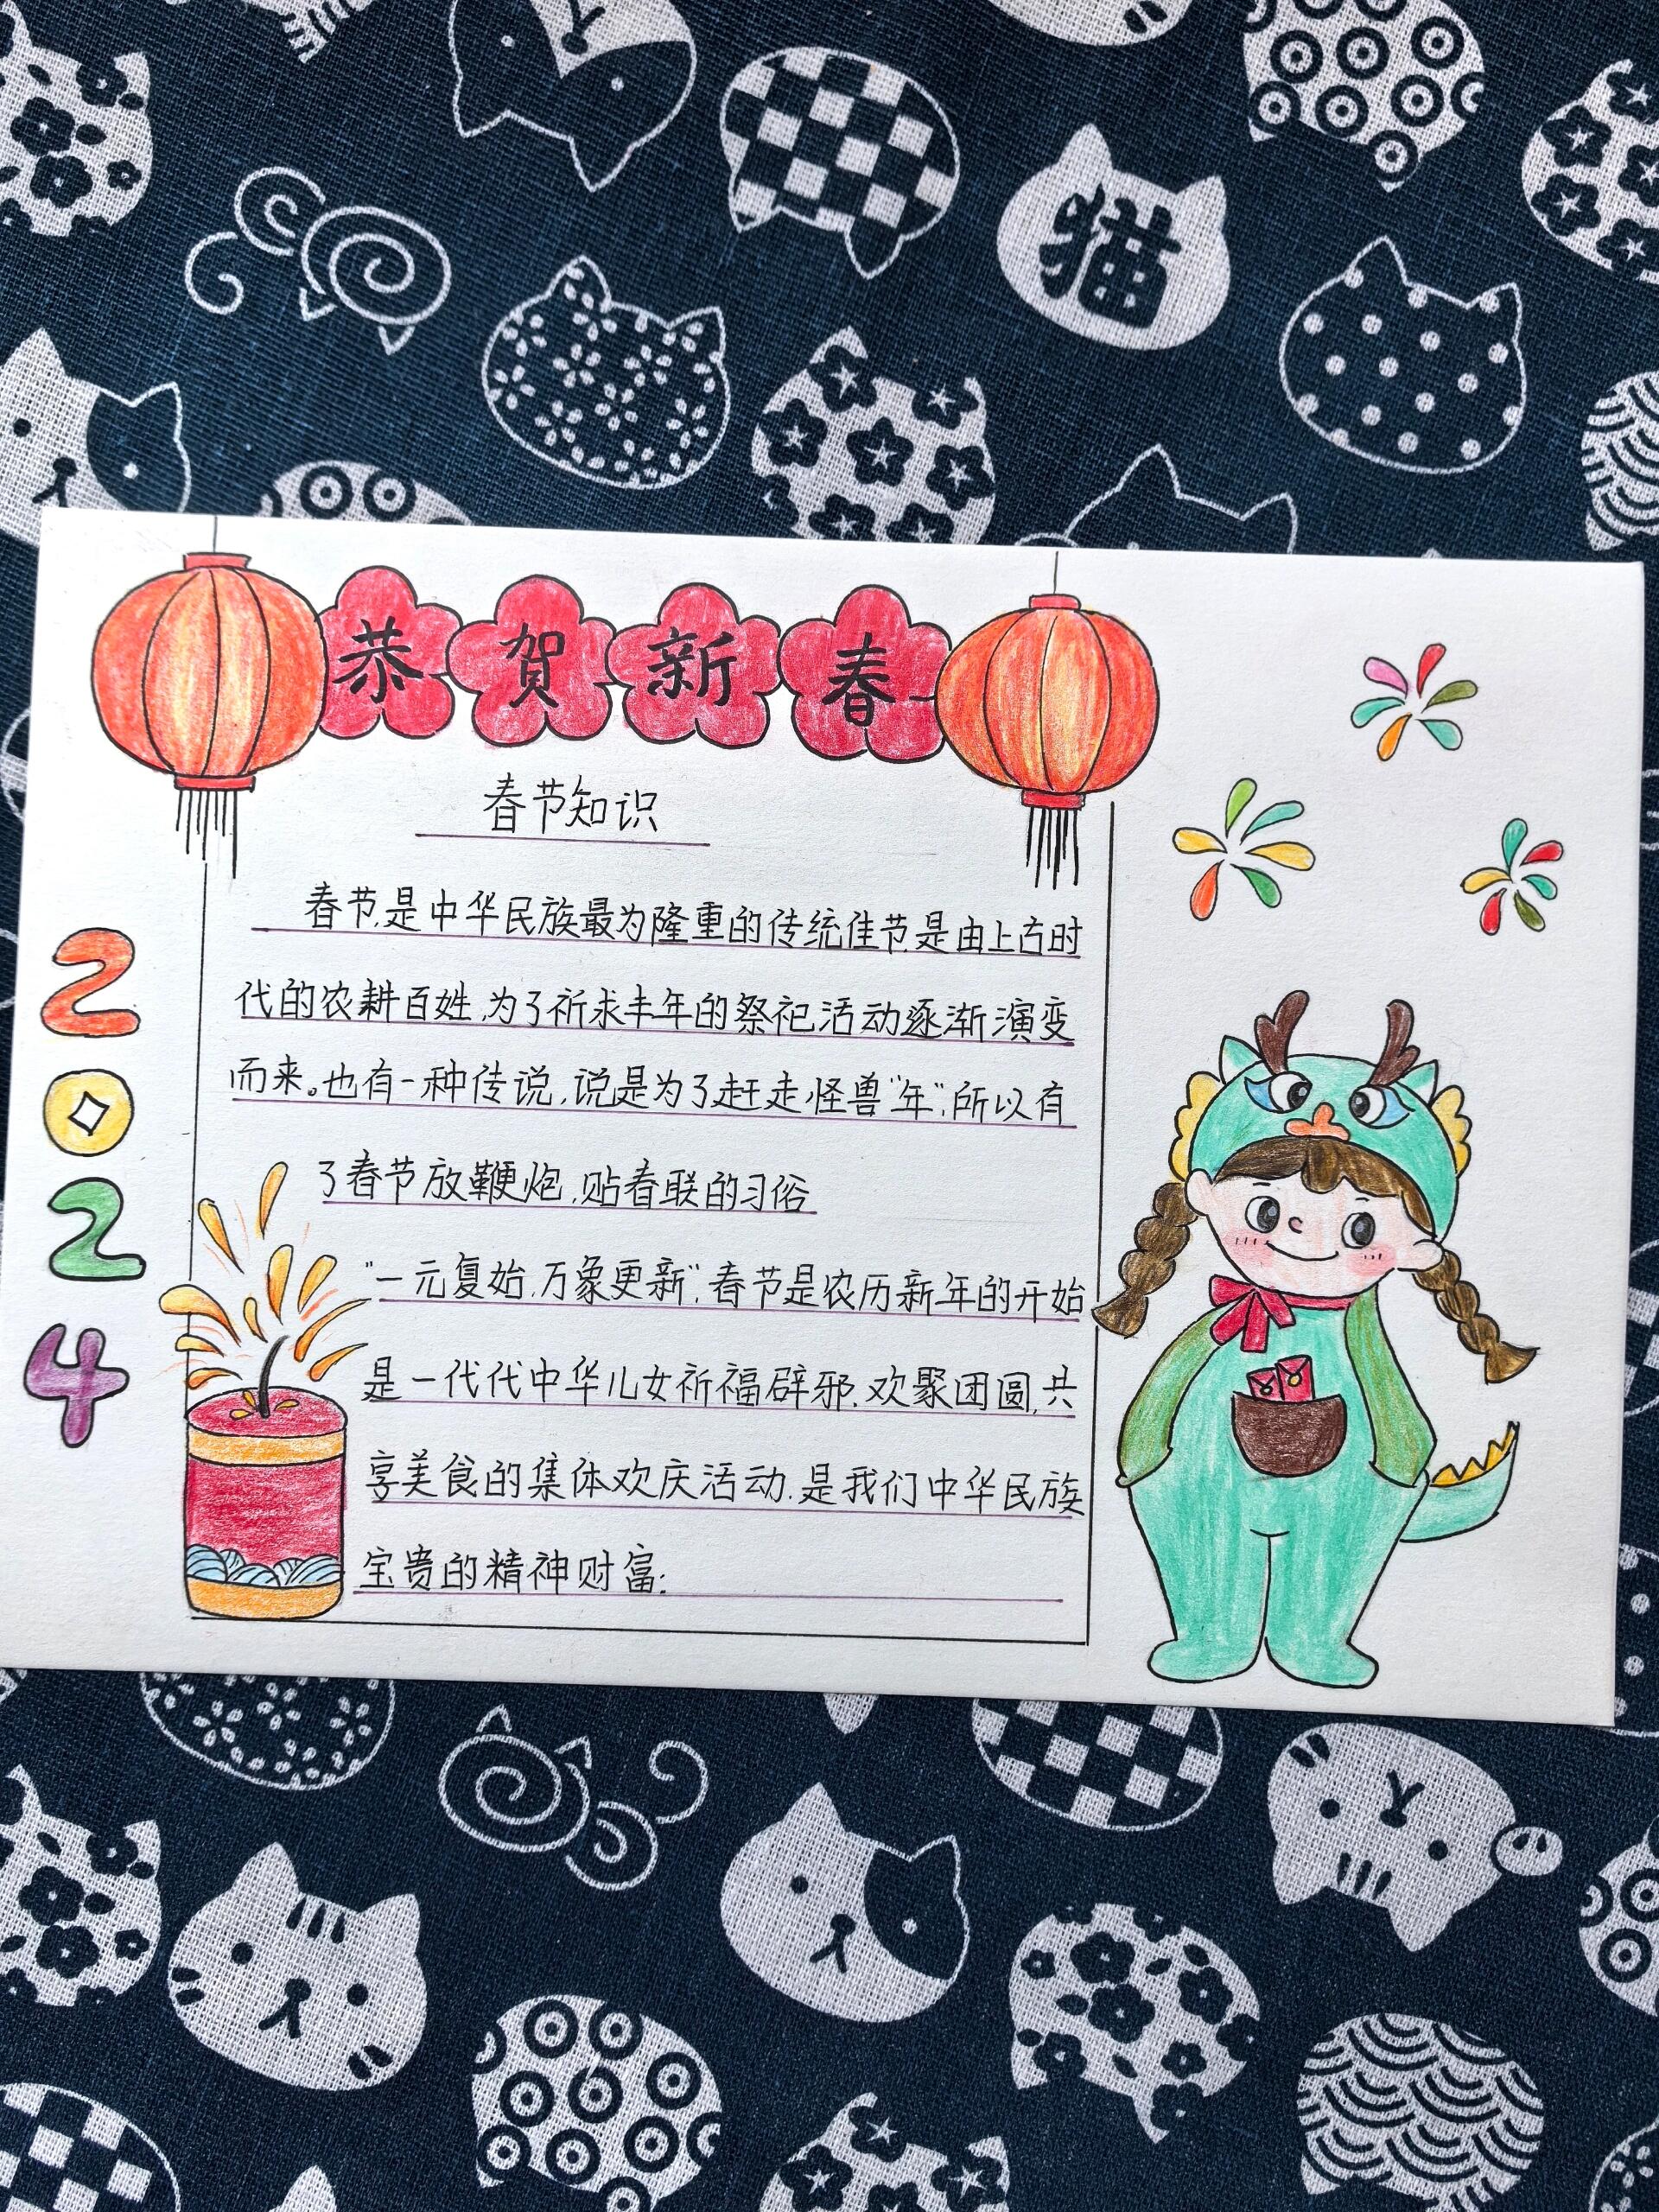 猫
恭贺新春
春节知识
春节,是中华民族最为隆重的传统佳节,是由上古时
代的农耕百姓,为了祈求丰年的祭祀活动逐渐演变
而来。也有一种传说,说是为了赶走怪兽"年",所以有
了春节放鞭炮,贴春联的习俗
"一元复始,万象更新",春节是农历新年的开始
是一代代中华儿女祈福辟邪,欢聚团圆,共
享美食的集体欢庆活动,是我们中华民族
宝贵的精神财富;
2
0
2
4